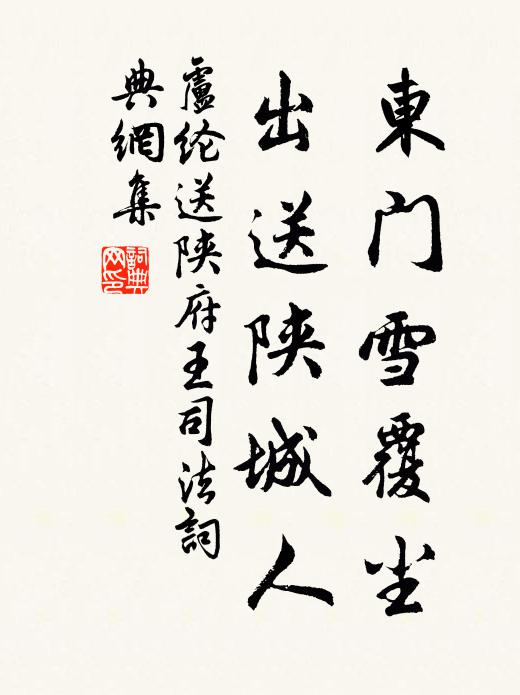 東门雪覆尘
出送陕城人
盧纶送陕府王司法詞
典網集
詞典
网印